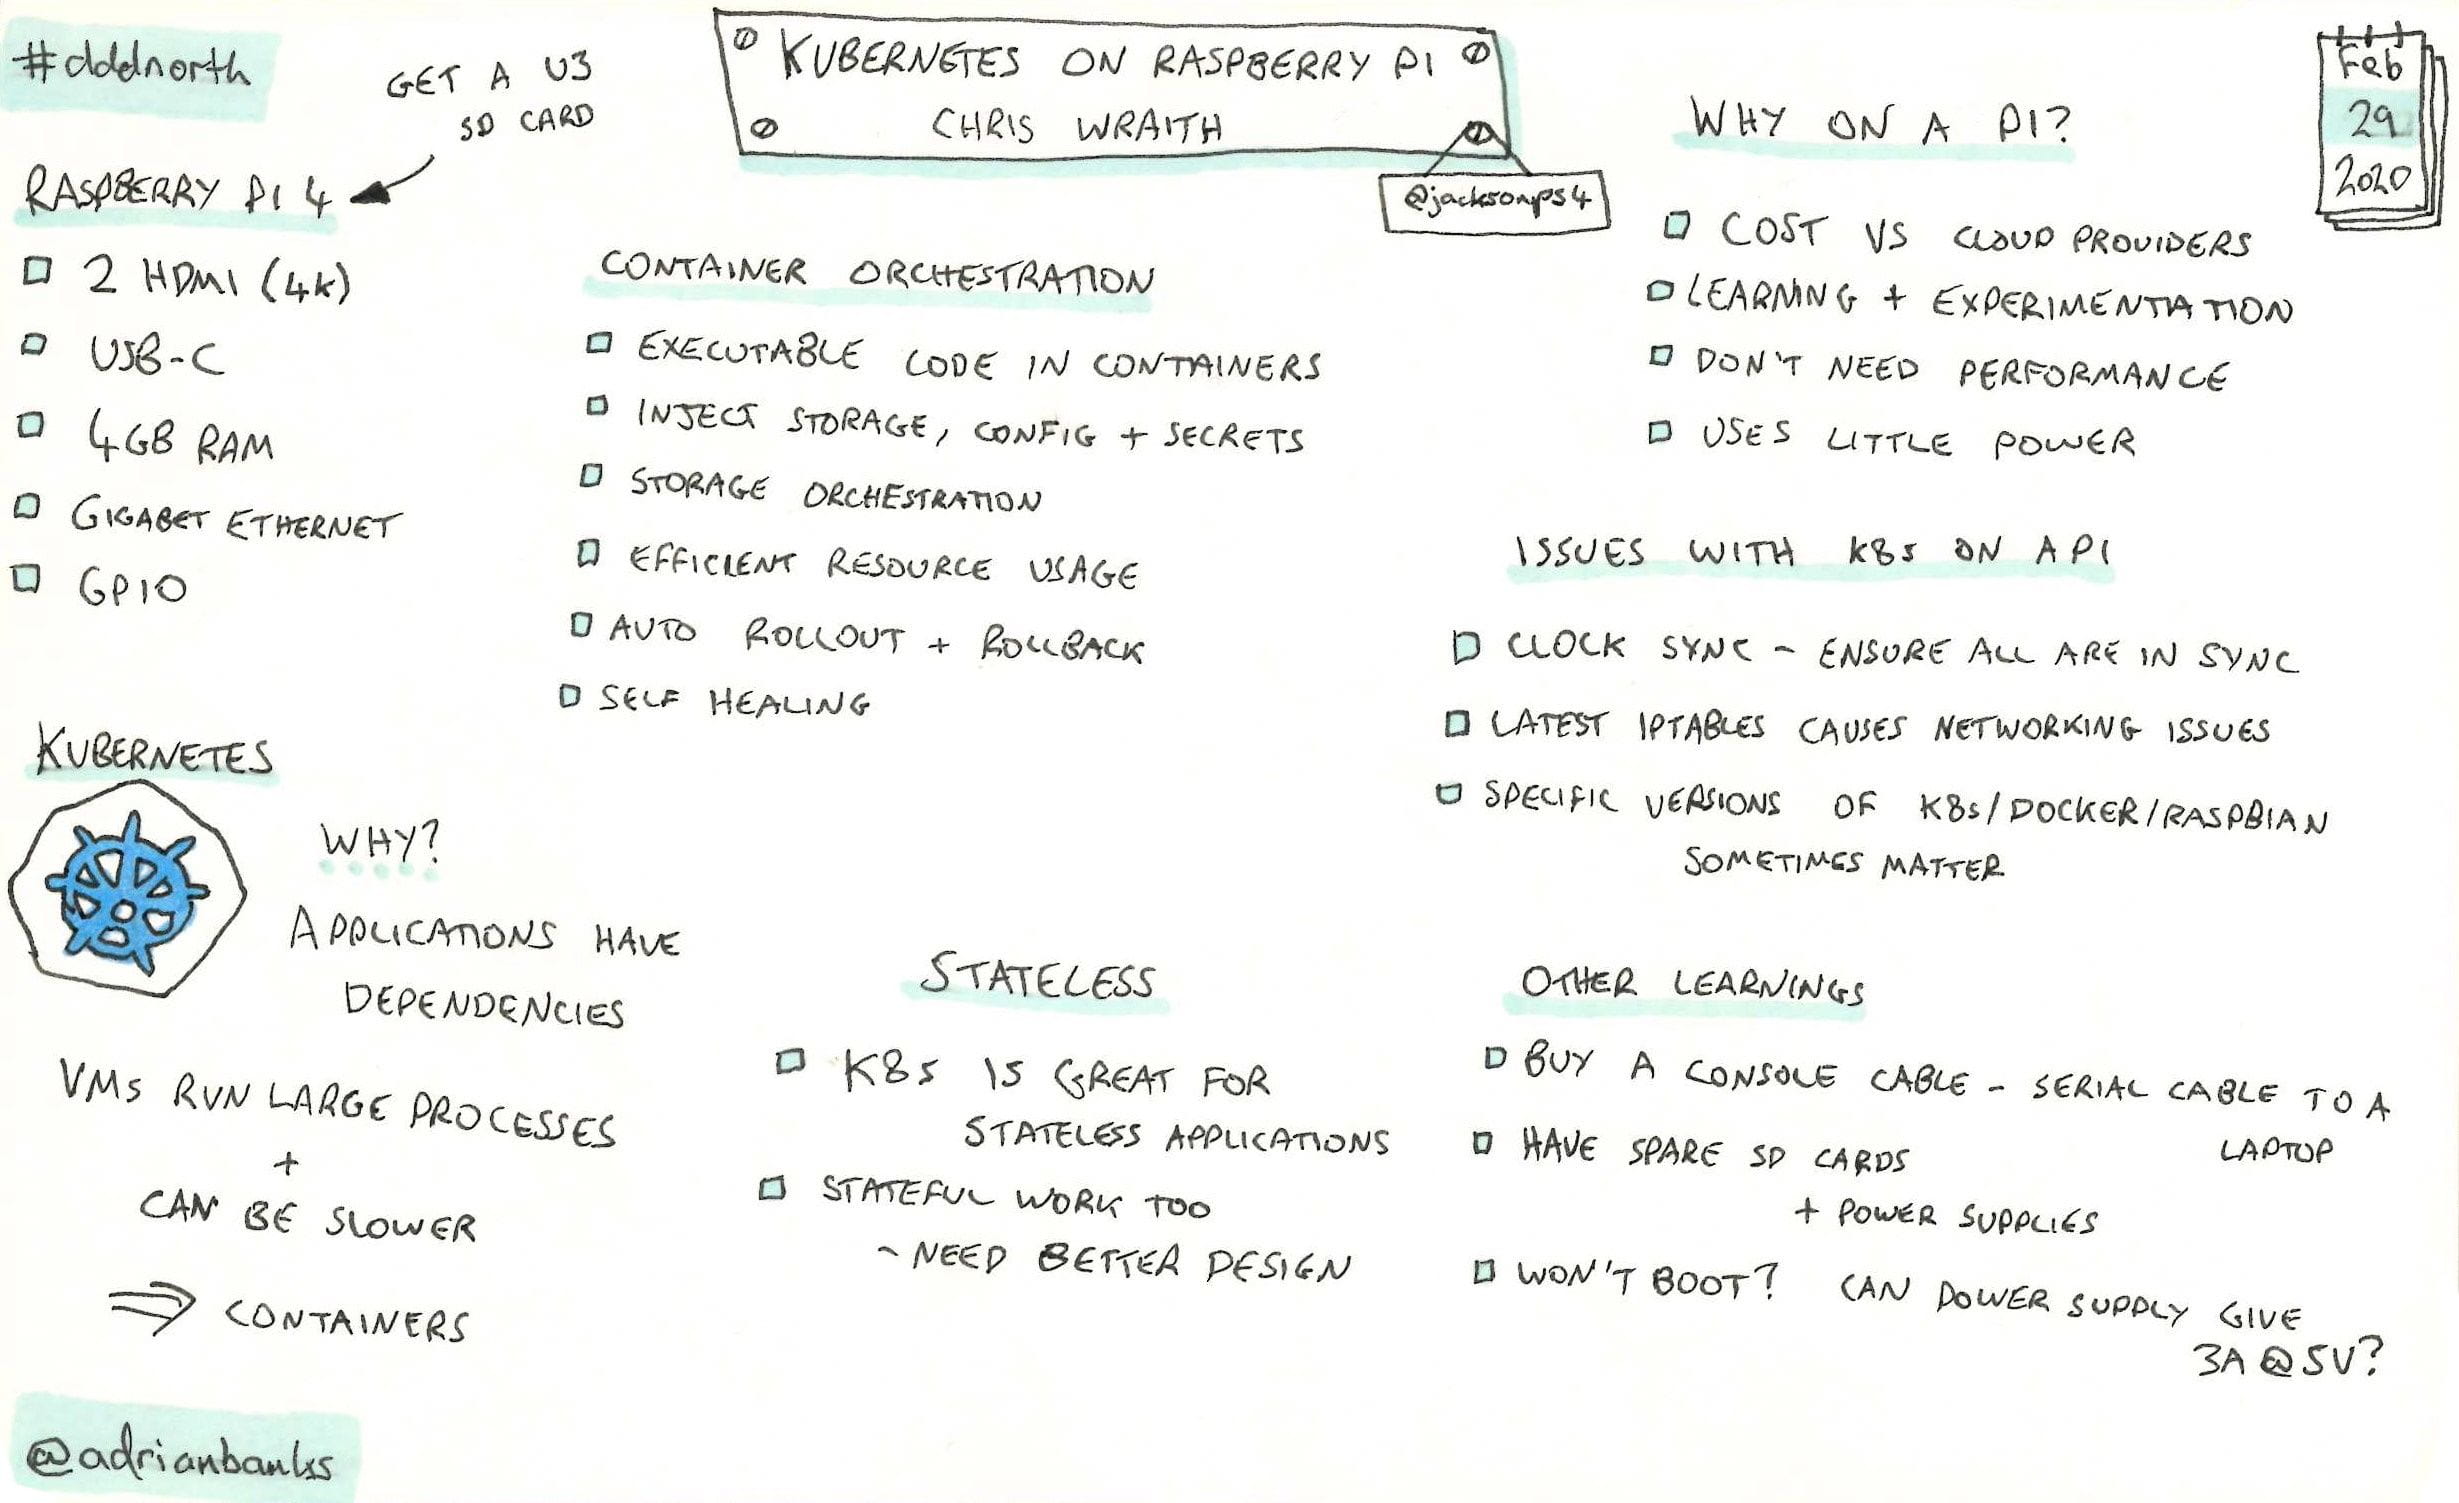 #dddnorth
GET A U3
SD CARD
KUBERNETES ON RASPBERRY PI
CHRIS WRAITH
@jacksonps4
Feb
29
2020
RASPBERRY PI 4
2 HDMI (4K)
USB-C
4GB RAM
GIGABET ETHERNET
GPIO
CONTAINER ORCHESTRATION
EXECUTABLE CODE IN CONTAINERS
INJECT STORAGE, CONFIG + SECRETS
STORAGE ORCHESTRATION
EFFICIENT RESOURCE USAGE
AUTO ROLLOUT + ROLLBACK
SELF HEALING
WHY ON A PI?
COST VS CLOUD PROVIDERS
LEARNING + EXPERIMENTIATION
DON'T NEED PERFORMANCE
USES LITTLE POWER
ISSUES WITH K8s ON A PI
CLOCK SYNC - ENSURE ALL ARE IN SYNC
LATEST IPTABLES CAUSES NETWORKING ISSUES
SPECIFIC VERSIONS OF K8s/DOCKER/RASPBIAN
SOMETIMES MATTER
KUBERNETES
WHY?
APPLICATIONS HAVE
DEPENDENCIES
VMs RUN LARGE PROCESSES
+
CAN BE SLOWER
⇒ CONTAINERS
STATELESS
K8s IS GREAT FOR
STATELESS APPLICATIONS
STATEFUL WORK TOO
- NEED BETTER DESIGN
OTHER LEARNINGS
BUY A CONSOLE CABLE - SERIAL CABLE TO A
LAPTOP
HAVE SPARE SD CARDS
+ POWER SUPPLIES
WON'T BOOT? CAN POWER SUPPLY GIVE
3A @ 5V?
@adrianbanks